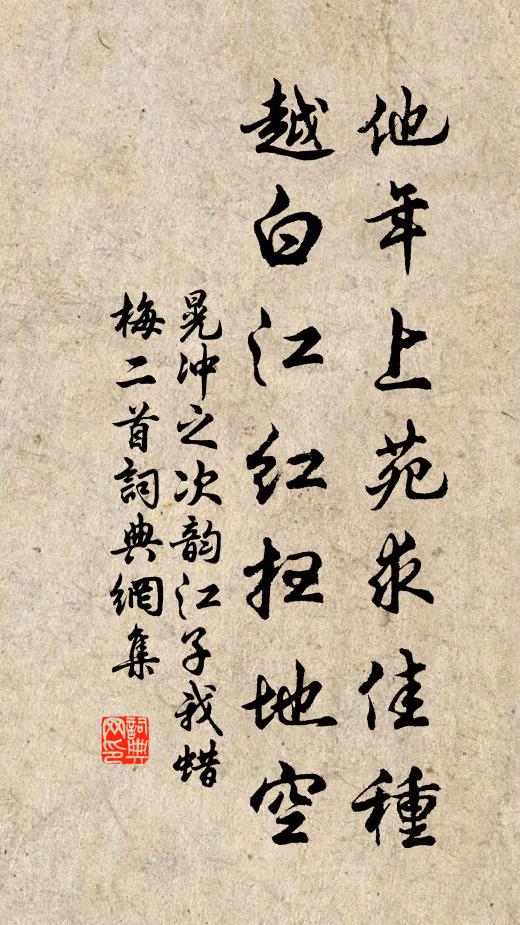 他年上苑求佳種
越白江红扫地空
晁冲之次韵江子我蜡
梅二首詞典網集
詞典
网印